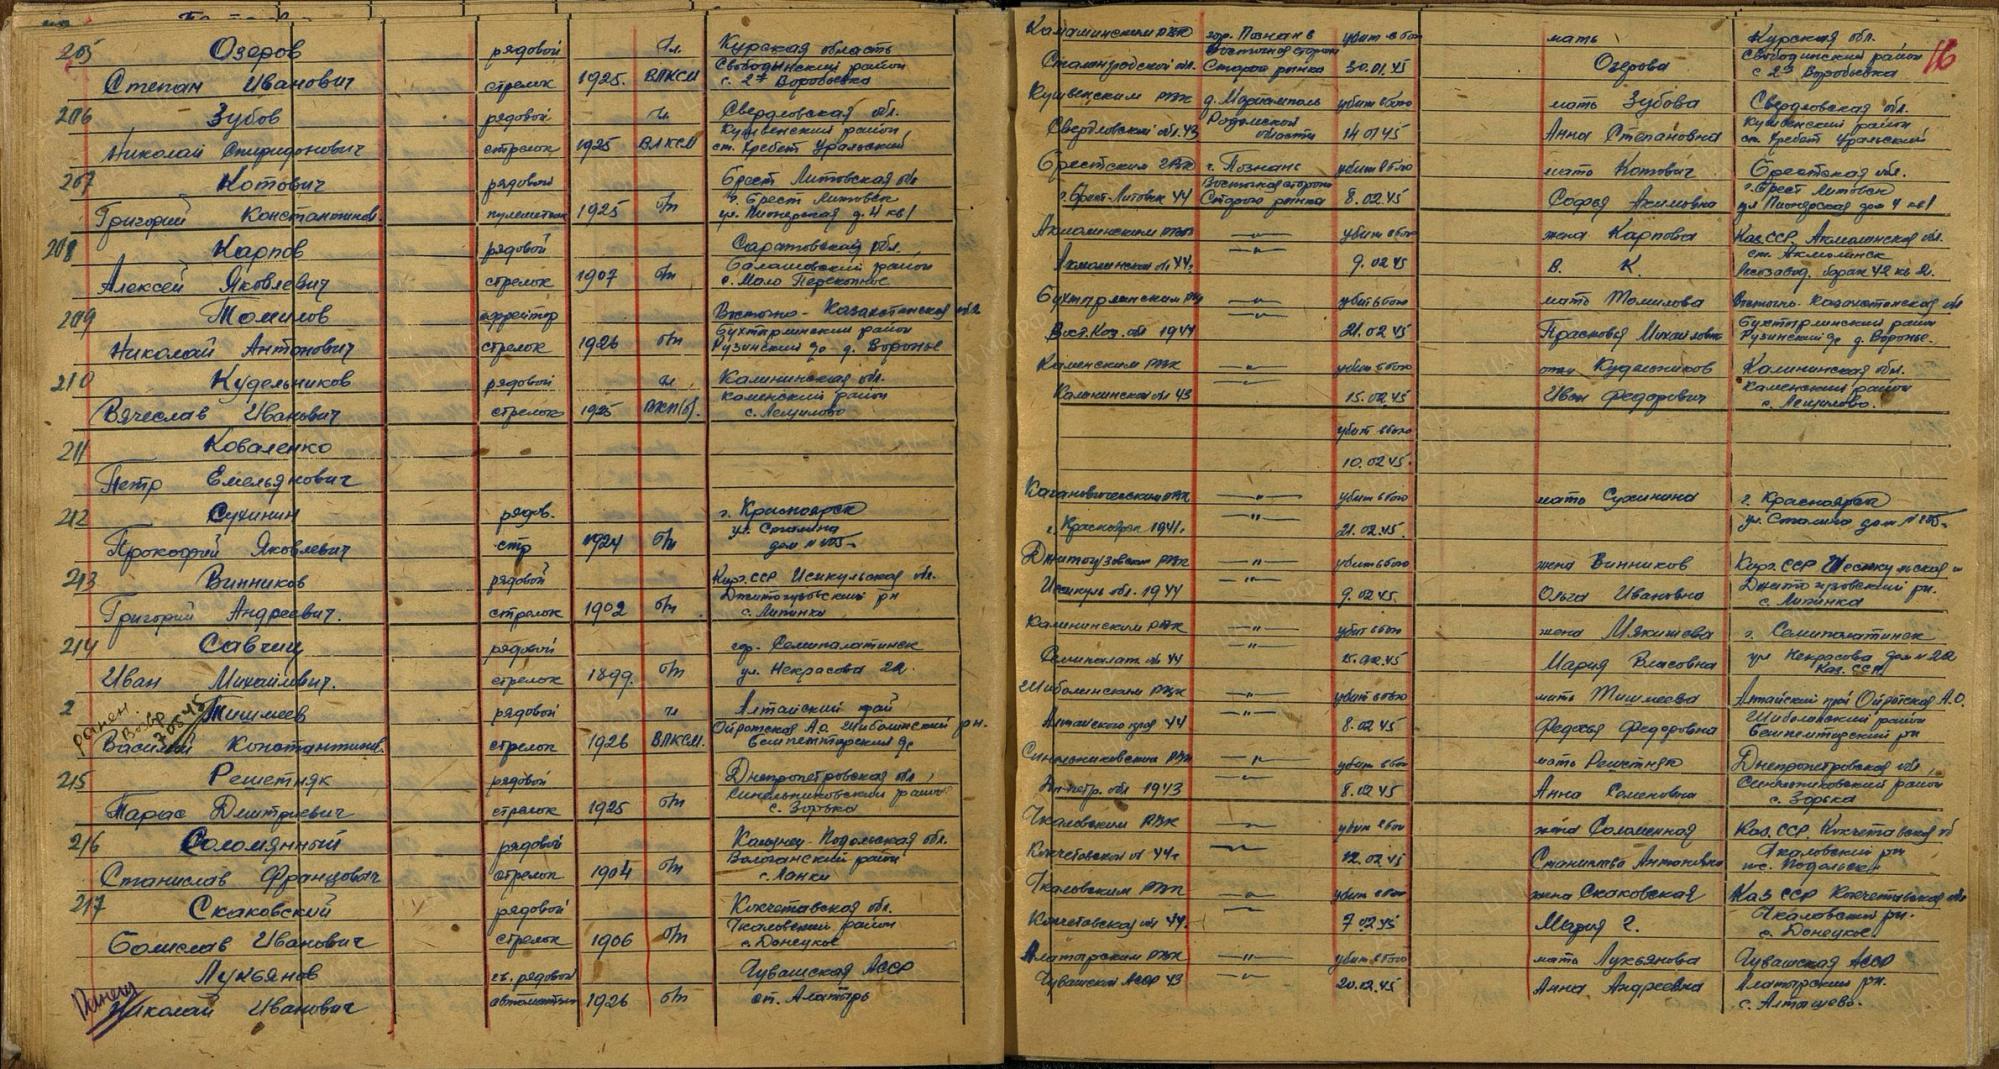 205 Озеров рядовой чл. Курская область
Степан Иванович стрелок 1925. ВЛКСМ Свободинский район
с. 2я Воробьевка
206 Зубов рядовой чл. Свердловская обл.
Николай Спиридонович стрелок 1925 ВЛКСМ Кушвенский район
ст. Хребет Уральский
207 Котович рядовой Брест Литовская обл
Григорий Константинов. пулеметчик 1925 б/п г. Брест Литовск
ул. Пионерская д. 4 кв 1
208 Карпов рядовой Саратовская обл.
Алексей Яковлевич стрелок 1907 б/п Балашовский район
с. Мало Перекопное
209 Томилов ефрейтор Восточно-Казахстанская обл
Николай Антонович стрелок 1926 б/п Бухтарминский район
д. Воронье
210 Кудельников рядовой чл Калининская обл.
Вячеслав Иванович стрелок 1925 ВКП(б). Каменский район
211 Коваленко
Петр Емельянович
212 Сухинин рядов. г. Красноярск
Прокофий Яковлевич стр 1924 б/п ул. Сталина
213 Винников рядовой Кирг. ССР Исикульская обл.
Григорий Андреевич. стрелок 1902 б/п
с. Липинка
214 Савчиц рядовой гор. Семипалатинск
Иван Михайлович. стрелок 1899. б/п ул. Некрасова 22.
2 Тишмеев рядовой чл Алтайский край
ранен. возвр 7.05.45
Василий Константинов. стрелок 1926 ВЛКСМ. Ойротская АО Шибалинский рн.
215 Решетняк рядовой Днепропетровская обл
Тарас Дмитриевич стрелок 1925 б/п Синельниковский район
с. Зорька
216 Соломянный рядовой Каменец Подольская обл.
Станислав Францович стрелок 1904 б/п
с. Ланки
217 Скаковский рядовой Кокчетавская обл.
Болислав Иванович стрелок 1906 б/п Чкаловский район
с. Донецкое
Лукьянов гв. рядовой Чувашская АССР
Ранен Николай Иванович автоматчик 1926 б/п ст. Алатырь
16
Камышинским РВК гор. Познань убит в бою мать Курская обл.
Сталинградской обл. Восточная сторона Старого рынка 30.01.45 Озерова Свободинский район
с 2я Воробьевка
Кушвенским РВК д. Мариамполь убит в бою мать Зубова Свердловская обл.
Свердловской обл. 43 Радомской области 14.01.45 Анна Степановна Кушвенский район
ст. Хребет Уральский
Брестским ГВК г. Познань убит в бою мать Котович Брестская обл.
г. Брест-Литовск 44 Восточная сторона Старого рынка 8.02.45 Софья Акимовна г. Брест Литовск
ул Пионерская дом 4 кв 1
Акмолинским РВК —"— убит в бою жена Карпова Каз.ССР Акмолинская обл.
Акмолинской обл 44г. —"— 9.02.45 В. К. ст. Акмолинск
барак 42 кв 2.
Бухтарминским РВК —"— убит в бою мать Томилова Восточно-Казахстанская обл
Вост. Каз. обл 1944 —"— 21.02.45 Прасковья Михайловна Бухтарминский район
д. Воронье.
Каменским РВК —"— убит в бою отец Кудельников Калининская обл.
Калининской обл 43 —"— 15.02.45 Иван Федорович Каменский район
убит в бою
10.02.45.
Кагановическим РВК —"— убит в бою мать Сухинина г. Красноярск
г. Красноярск 1941г. —"— 21.02.45. ул. Сталина дом
—"— убит в бою жена Винников Кирг. ССР
Исикуль обл. 1944 —"— 9.02.45. Ольга Ивановна
с. Липинка
Калининским РВК —"— убит в бою жена Мякишева г. Семипалатинск
Семипалат. обл 44 —"— 15.02.45 Мария Власовна ул Некрасова дом № 22
Каз. ССР.
Шибалинским РВК —"— убит в бою мать Тишмеева Алтайский край Ойротская А.О.
Алтайского края 44 —"— 8.02.45 Федосья Федоровна Шибалинский район
Синельниковским РВК —"— убит в бою мать Решетняк Днепропетровская обл,
Дн-петр. обл 1943 —"— 8.02.45 Анна Семеновна Синельниковский район
с. Зорька
Чкаловским РВК —"— убит в бою жена Соломенная Каз. ССР Кокчетавская об
Кокчетавской обл 44г —"— 12.02.45 Антоновна Чкаловский рн
Чкаловским РВК —"— убит в бою жена Скаковская Каз ССР Кокчетавская обл
Кокчетавской обл 44. —"— 7.02.45 Мария Г. Чкаловский рн.
с. Донецкое.
Алатырским РВК —"— убит в бою мать Лукьянова Чувашская АССР
Чувашской АССР 43 —"— 20.12.45 Анна Андреевна Алатырский рн.
с. Алтышево.